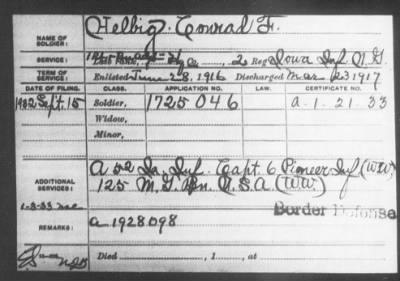 NAME OF SOLDIER: Helbig, Conrad F.
SERVICE: Late Rank, Hq Co, 2 Reg Iowa Inf N.G.
TERM OF SERVICE: Enlisted June 28, 1916 Discharged Mar 23 1917
DATE OF FILING. CLASS. APPLICATION NO. LAW. CERTIFICATE NO.
1932 Sept. 15 Soldier, 1725046 A-1-21-33
Widow,
Minor,
ADDITIONAL SERVICES: A 52 Ia. Inf. Capt. 6 Pioneer Inf (WW)
125 M.G. Bn. U.S.A (WW)
1-3-33 Border Defense
REMARKS: A 1928098
Died , 1 , at